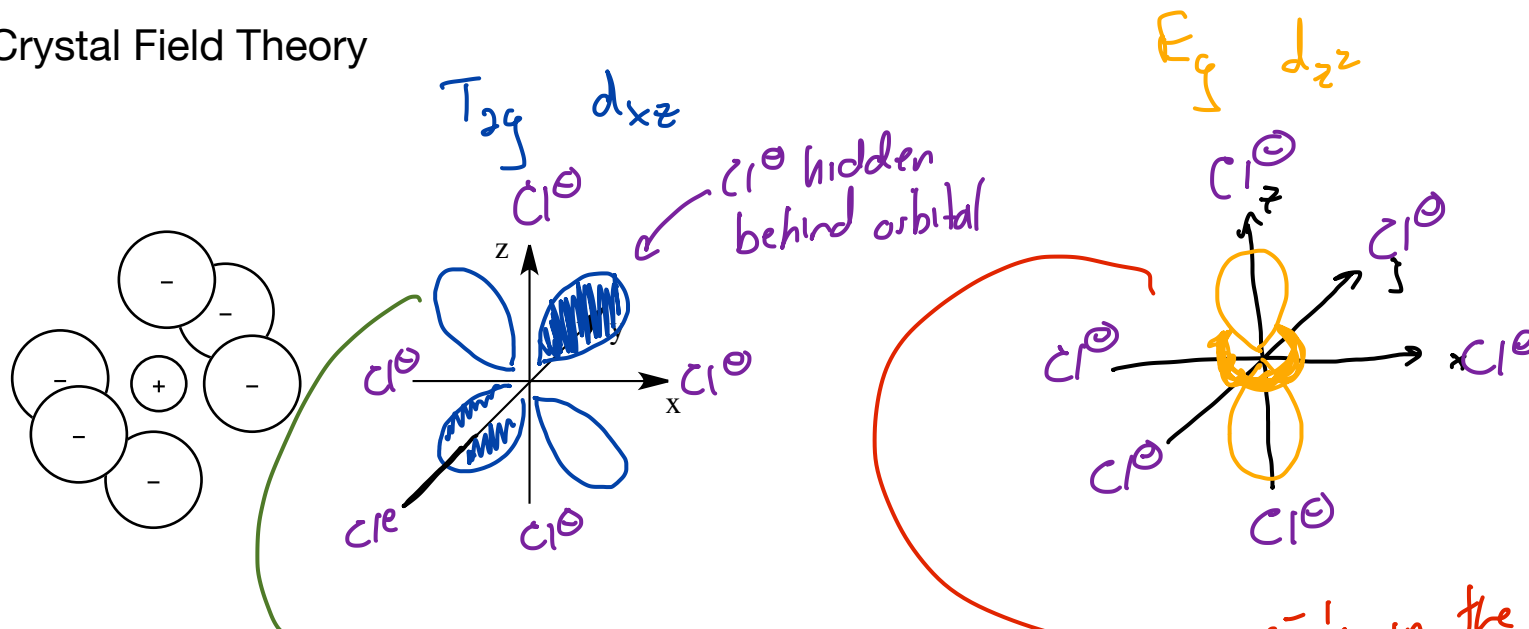 Crystal Field Theory
T2g dxz
Eg dz2
Cl⊖
Cl⊖ hidden
behind orbital
z
y
x
Cl⊖
Cl⊖
Cl⊖
Cl⊖
−
−
−
−
−
−
+
Cl⊖
z
Cl⊖
y
Cl⊖
x Cl⊖
Cl⊖
Cl⊖
in the